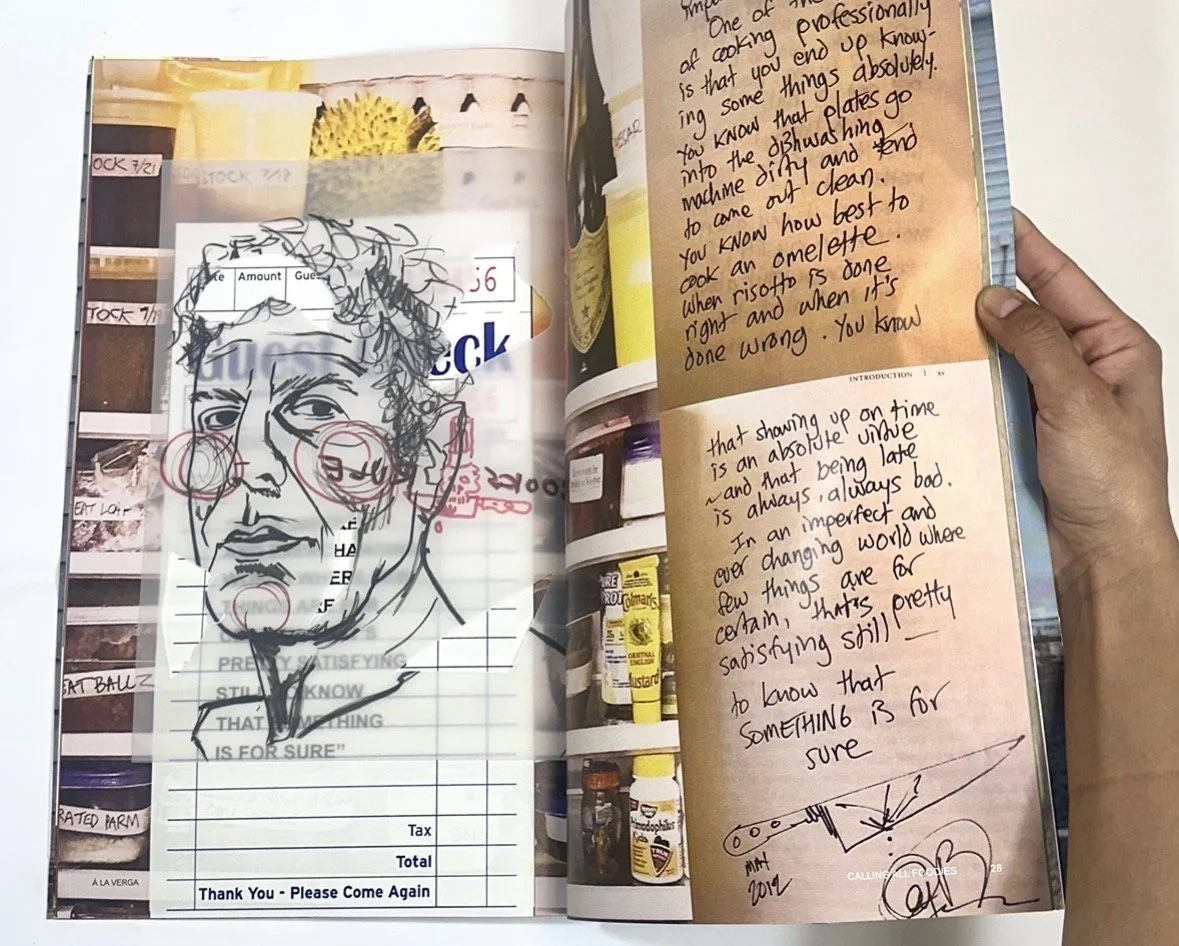 OCK 7/21
STOCK 7/19
TOCK 7/19
EAT LOAF
EAT BALLZ
RATED PARM
À LA VERGA
Amount
56
Guest
eck
RULE
HA
ER
THINGS ARE
PRETTY SATISFYING
STILL KNOW
THAT SOMETHING
IS FOR SURE”
Tax
Total
Thank You - Please Come Again
Colman's
ORIGINAL
ENGLISH
Mustard
One of the
of cooking professionally
is that you end up know-
ing some things absolutely.
You know that plates go
into the dishwashing
machine dirty and tend
to come out clean.
You know how best to
cook an omelette.
when risotto is done
right and when it's
done wrong. You know
INTRODUCTION | xv
that showing up on time
is an absolute virtue
~and that being late
is always, always bad.
In an imperfect and
ever changing world where
few things are for
certain, that's pretty
satisfying still —
to know that
SOMETHING is for
sure
MAY
2012
CALLING ALL FOODIES
28